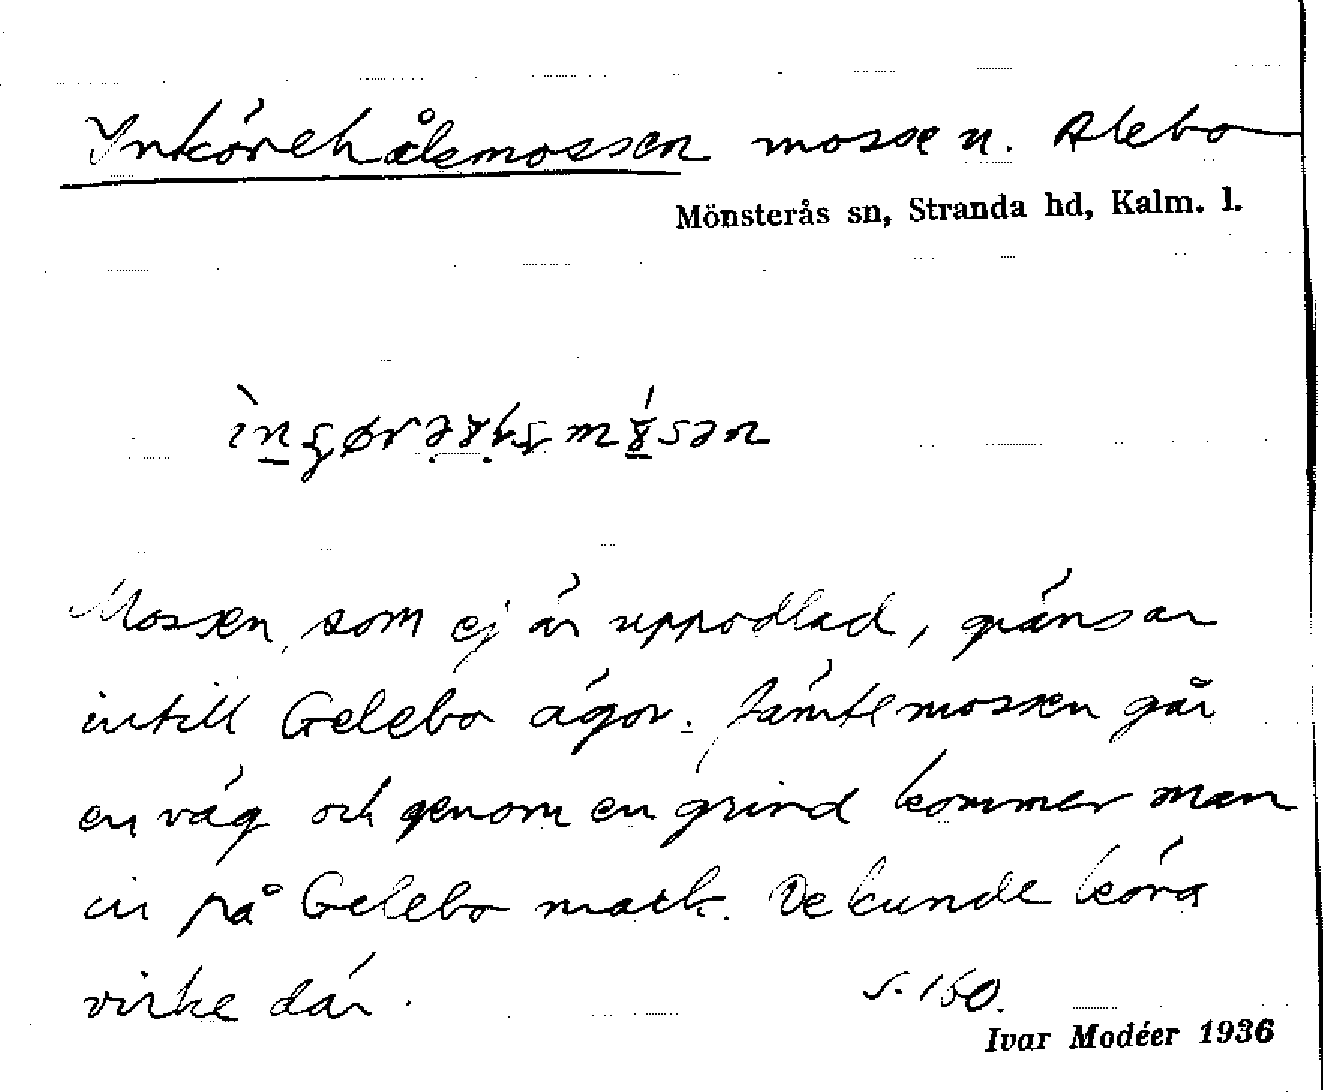 Inkörehålsmossen mosse n. Alebo
Mönsterås sn, Stranda hd, Kalm. l.
Mossen, som ej är uppodlad, gränsar
intill Gelebo ägor. Jämte mossen går
en väg och genom en grind kommer man
in på Gelebo mark. De kunde köra
virke där. s. 150.
Ivar Modéer 1936